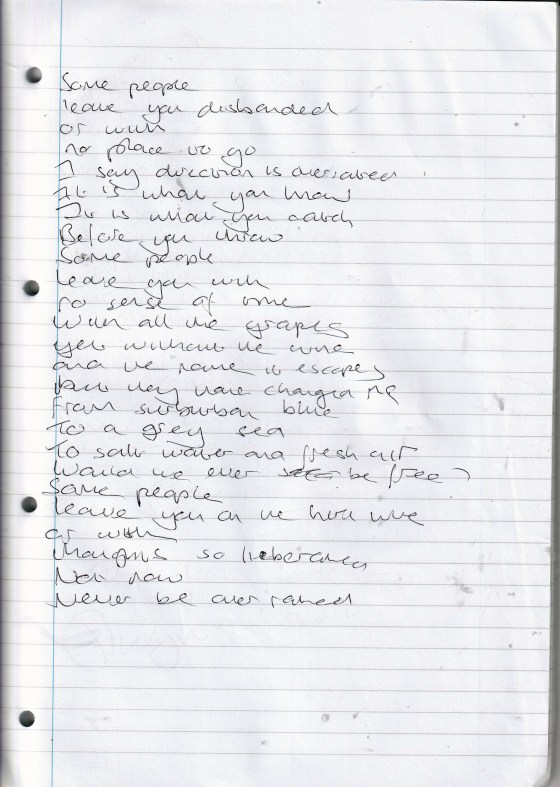 Some people
leave you disbanded
or with
no place to go
I say direction is overrated
It is what you know
It is what you catch
Before you throw
Some people
leave you with
no sense of time
With all the grapes
yet without the wine
and the name it escapes
but they have changed me
From suburban blue
To a grey sea
To salt water and fresh air
Would we ever be free?
Some people
leave you on the
or with
thoughts so
Not now
Never be over